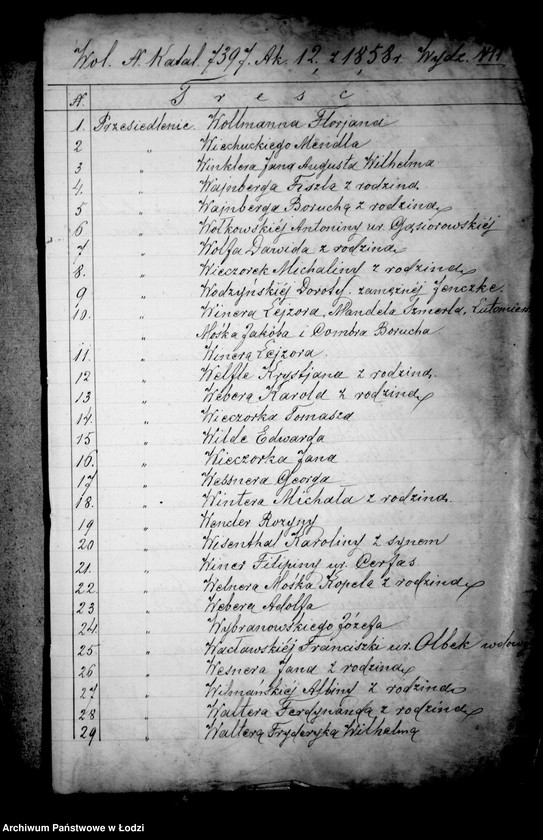 Wol. N. Katal. 7397. Ak. 12, z 1858 r. Wydz.
N. Treść
1. Przesiedlenie Wollmanna Florjana
2 " Wiechuckiego Mendla
3 " Winklera Jana Augusta Wilhelma
4. " Wajnberga Fiszla z rodziną
5 " Wajnberga Borucha z rodziną
6 " Wolkowskiéj Antoniny ur. Gąsiorowskiéj
7 " Wolfa Dawida z rodziną
8. " Wieczorek Michaliny z rodziną
9 " Wodzyńskiéj Doroty. zamężnéj Jenczke.
10. " Winera Lejzora, Mandela Szmerla,
Mośka Jakóba i Combra Borucha
11. " Winera Lejzora.
12 " Welfle Krystjana z rodziną.
13 " Webera Karola z rodziną
14. " Wieczorka Tomasza
15 " Wilde Edwarda
16. " Wieczorka Jana
17. " Wessnera Georga
18. " Wintera Michała z rodziną.
19 " Wender Rozyny
20 " Wisenthal Karoliny z synem
21. " Winer Filipiny ur. Cerfas
22. " Welnera Mośka Kopela z rodziną
23 " Webera Adolfa
24. " Wybranowskiego Józefa
25. " Wacławskiéj Franciszki ur. Olbek wdowy
26 " Wesnera Jana z rodziną
27 " Wilmańskiéj Albiny z rodziną
28 " Waltera Ferdynanda z rodziną
29 " Waltera Fryderyka Wilhelma
Archiwum Państwowe w Łodzi